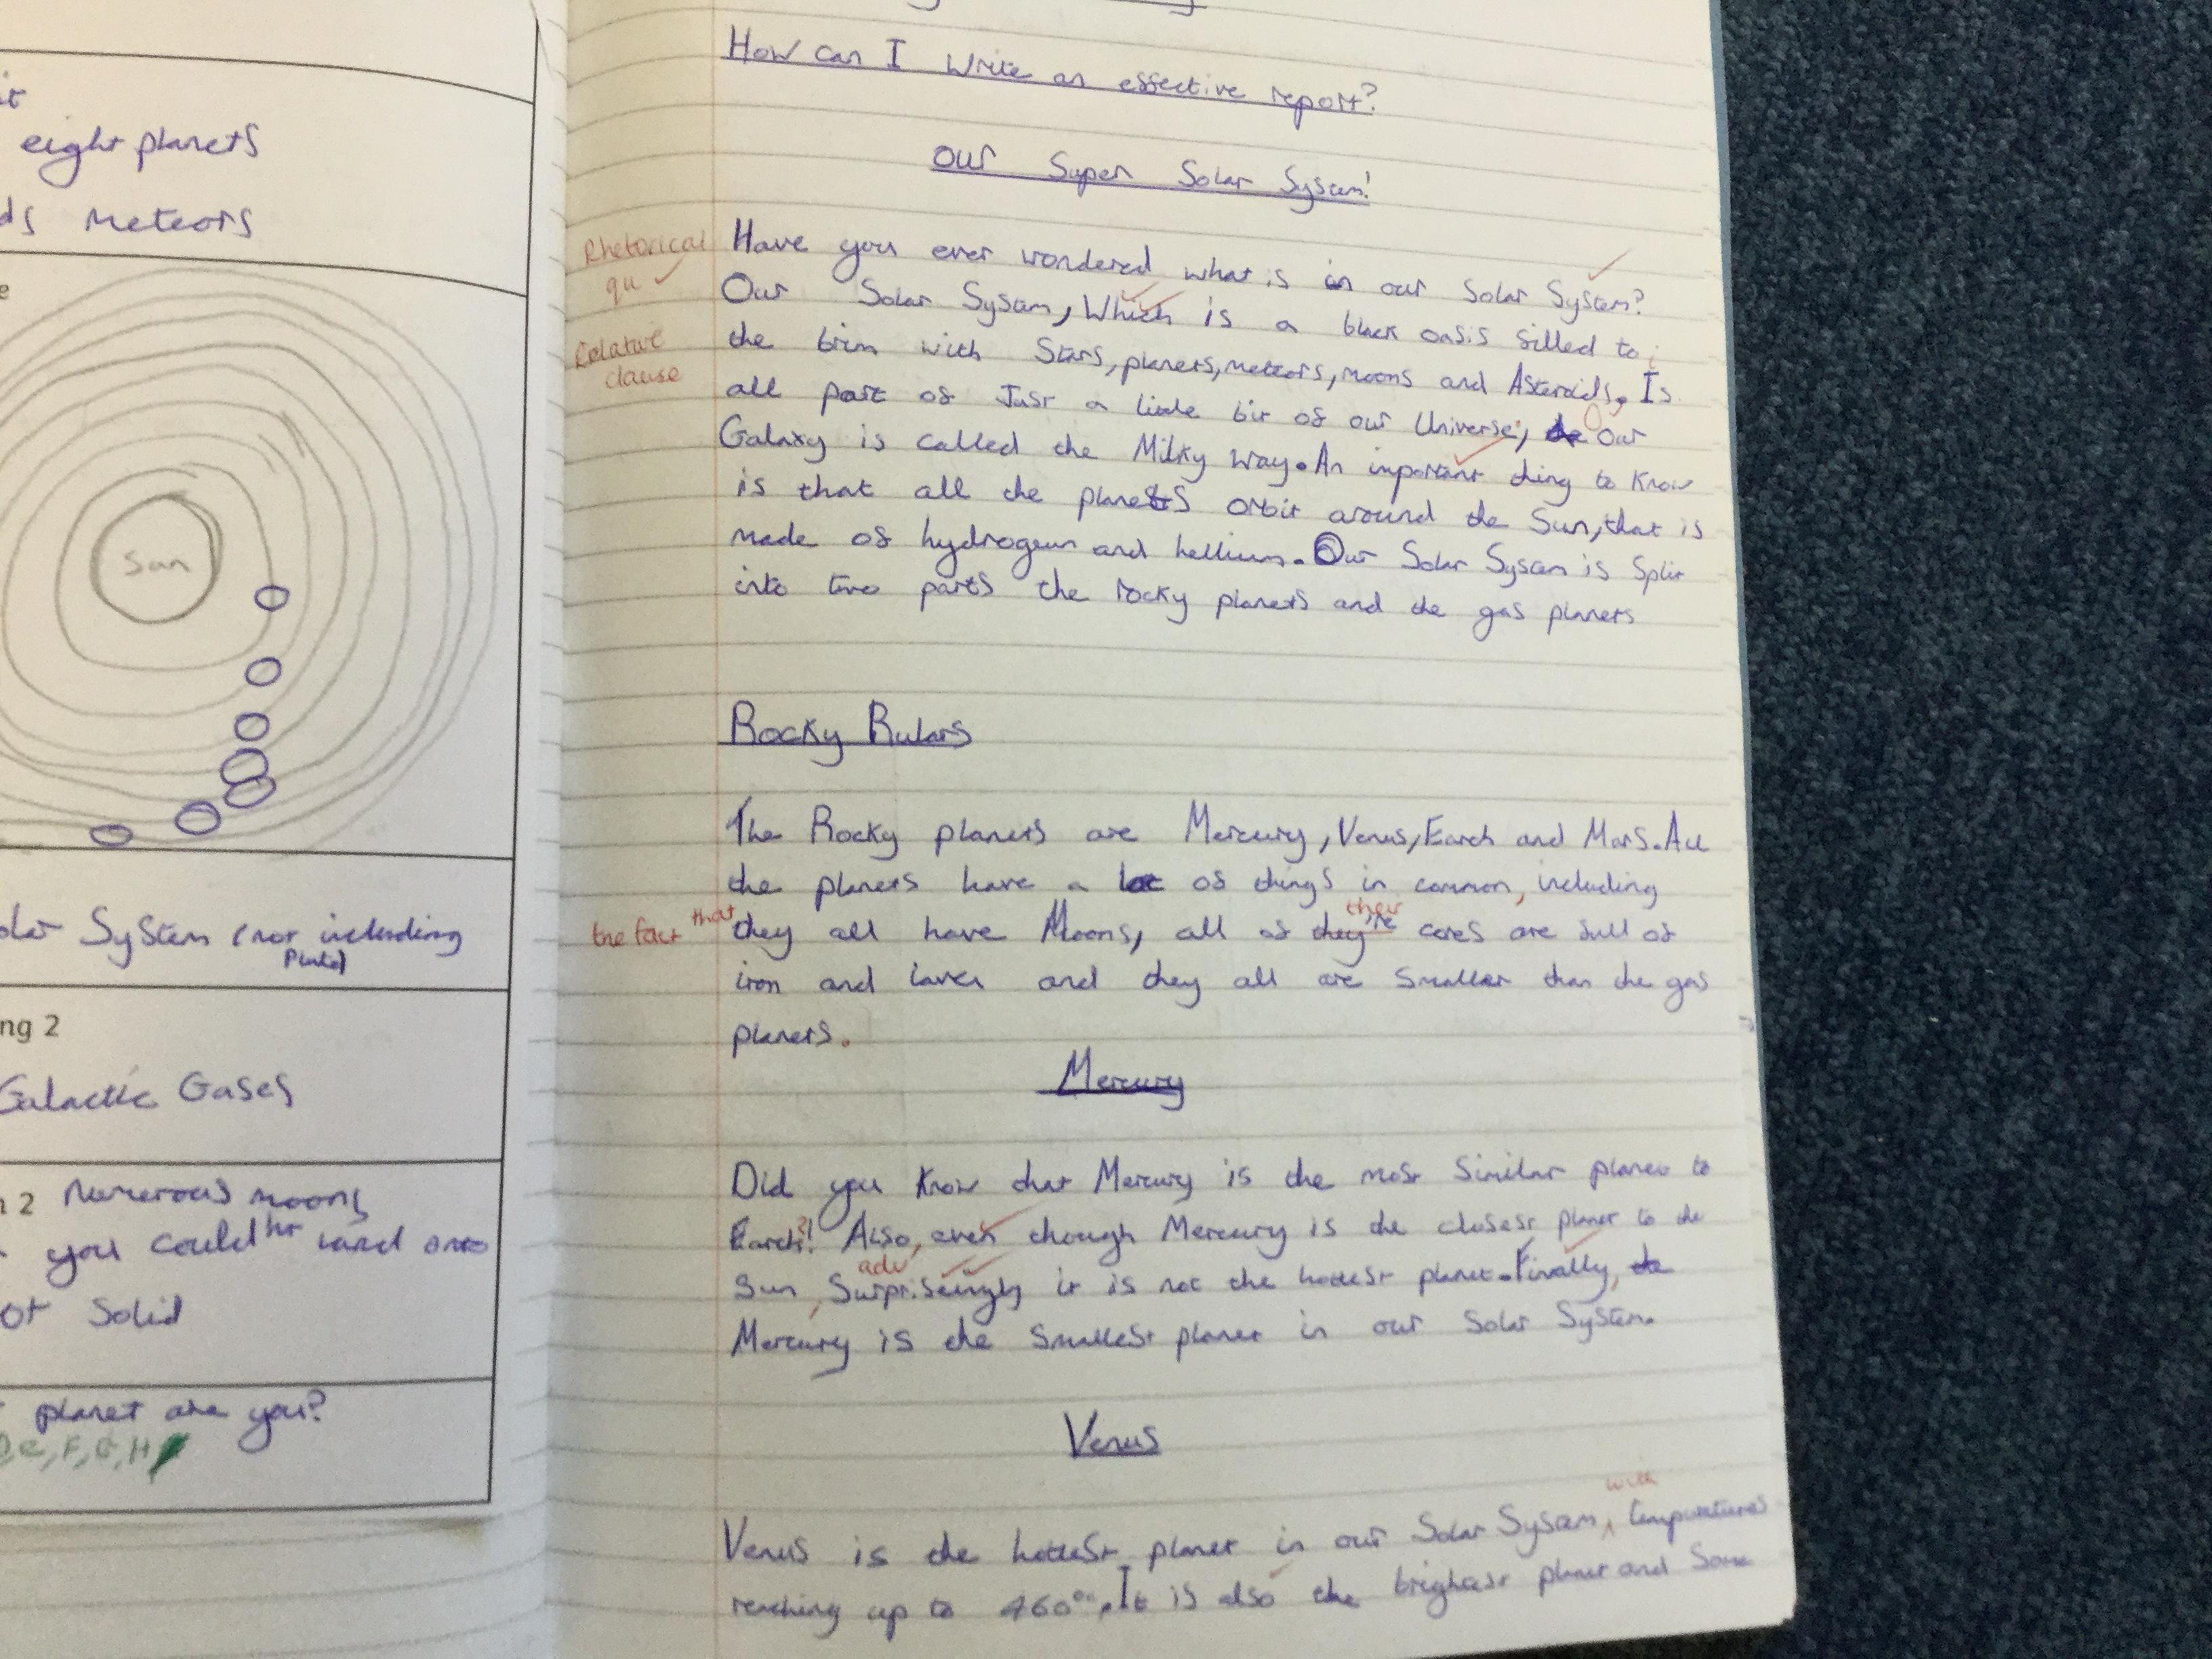 eight planets
meteors
Sun
Solar System (not including
Pluto)
ng 2
Galactic Gases
2 Numerous moons
you couldnt land onto
ot Solid
planet are you?
e, F, G, H
How can I write an effective report?
Our Super Solar System!
Rhetorical
qu
Have you ever wondered what is in our Solar System?
Our Solar System, Which is a black oasis filled to
Relative
clause
the brim with Stars, planets, meteors, moons and Asteroids, Is
all part of Just a little bit of our Universe; Our
Galaxy is called the Milky Way. An important thing to know
is that all the planets orbit around the Sun, that is
made of hydrogeun and hellium. Our Solar System is Split
into two parts the rocky planets and the gas planets
Rocky Rulars
The Rocky planets are Mercury, Venus, Earth and Mars. All
the planets have a lot of things in common, including
the fact that they all have Moons, all of they're their cores are full of
iron and lava and they all are smaller than the gas
planets.
Mercury
Did you know that Mercury is the most similar planet to
Earth?! Also, even though Mercury is the closest planet to the
adv
Sun, Surprisingly it is not the hottest planet. Finally,
Mercury is the smallest planet in our Solar System.
Venus
with
Venus is the hottest planet in our Solar System, temperatures
reaching up to 460°c. It is also the brightest planet and Some